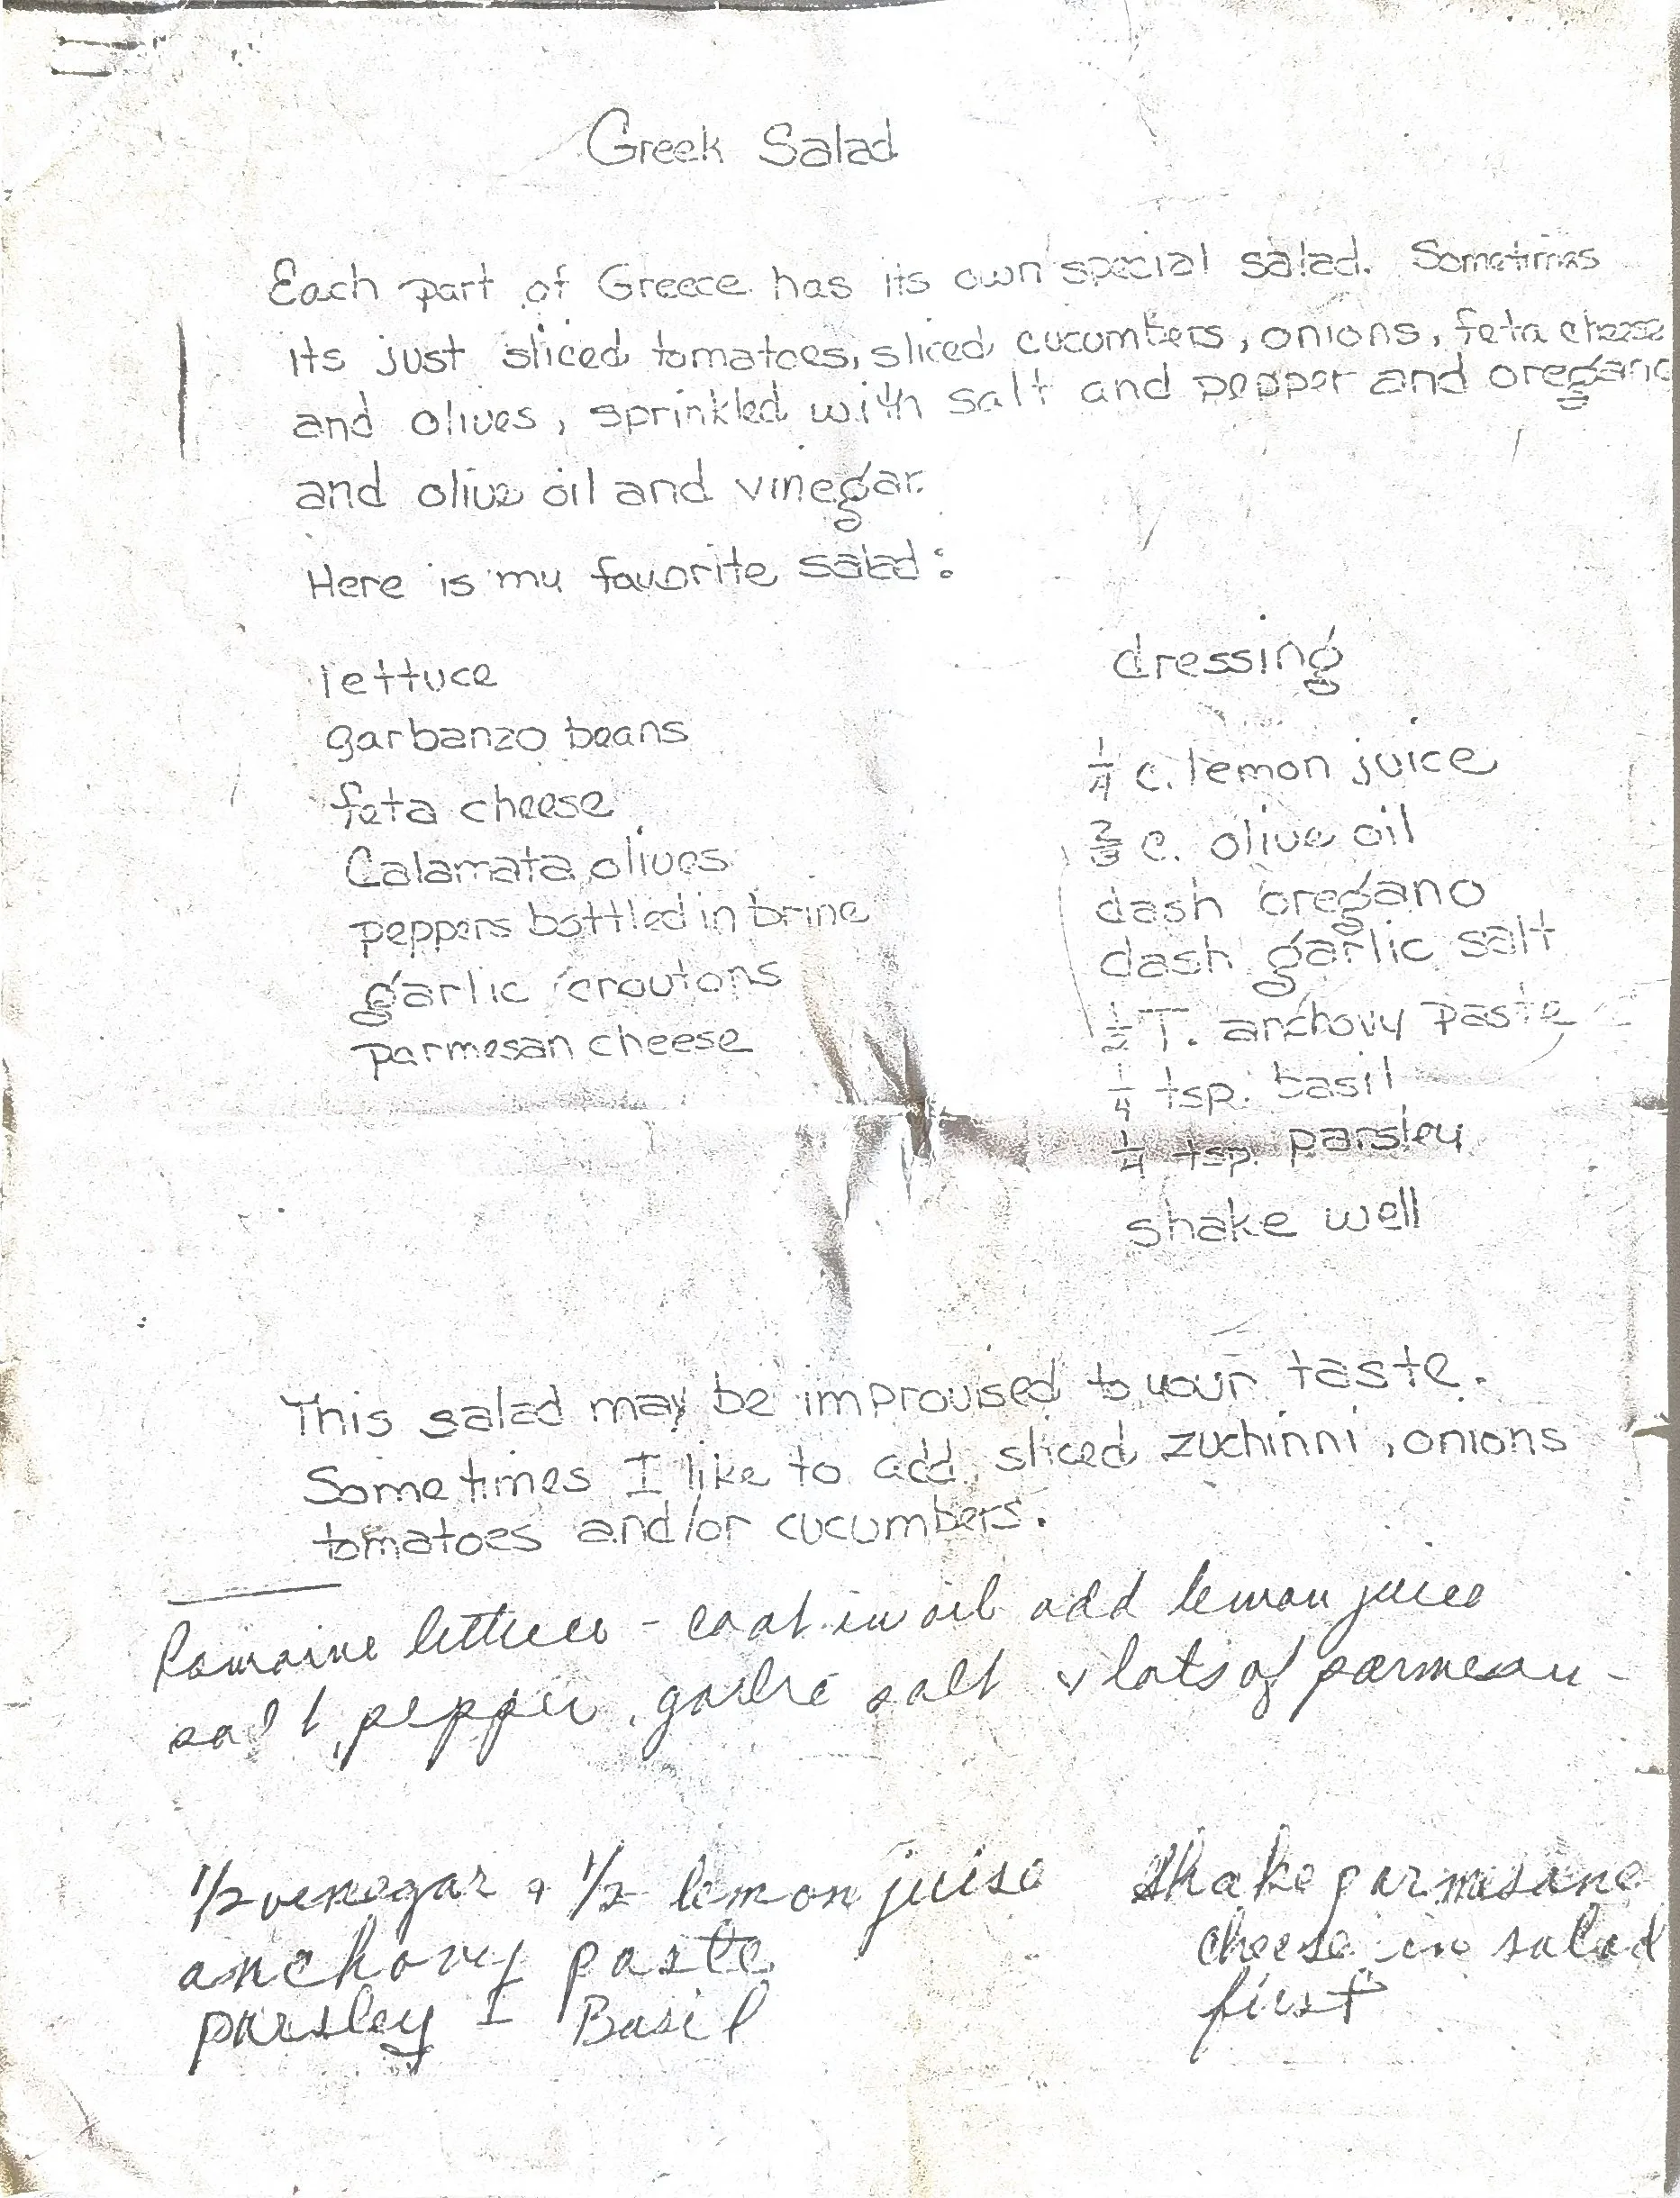 Greek Salad
Each part of Greece has its own special salad. Sometimes
its just sliced tomatoes, sliced cucumbers, onions, feta cheese
and olives, sprinkled with salt and pepper and oregano
and olive oil and vinegar.
Here is my favorite salad:
lettuce
garbanzo beans
feta cheese
Calamata olives
peppers bottled in brine
garlic croutons
parmesan cheese
dressing
1/4 c. lemon juice
2/3 c. olive oil
dash oregano
dash garlic salt
1/2 T. anchovy paste
1/4 tsp. basil
1/4 tsp. parsley
shake well
This salad may be improvised to your taste.
Sometimes I like to add sliced zuchinni, onions
tomatoes and/or cucumbers.
Romaine lettuce - coat in oil add lemon juice
salt, pepper, garlic salt & lots of parmesan -
1/2 venegar & 1/2 lemon juise
anchovy paste
parsley & Basil
Shake parmesane
cheese in salad
first